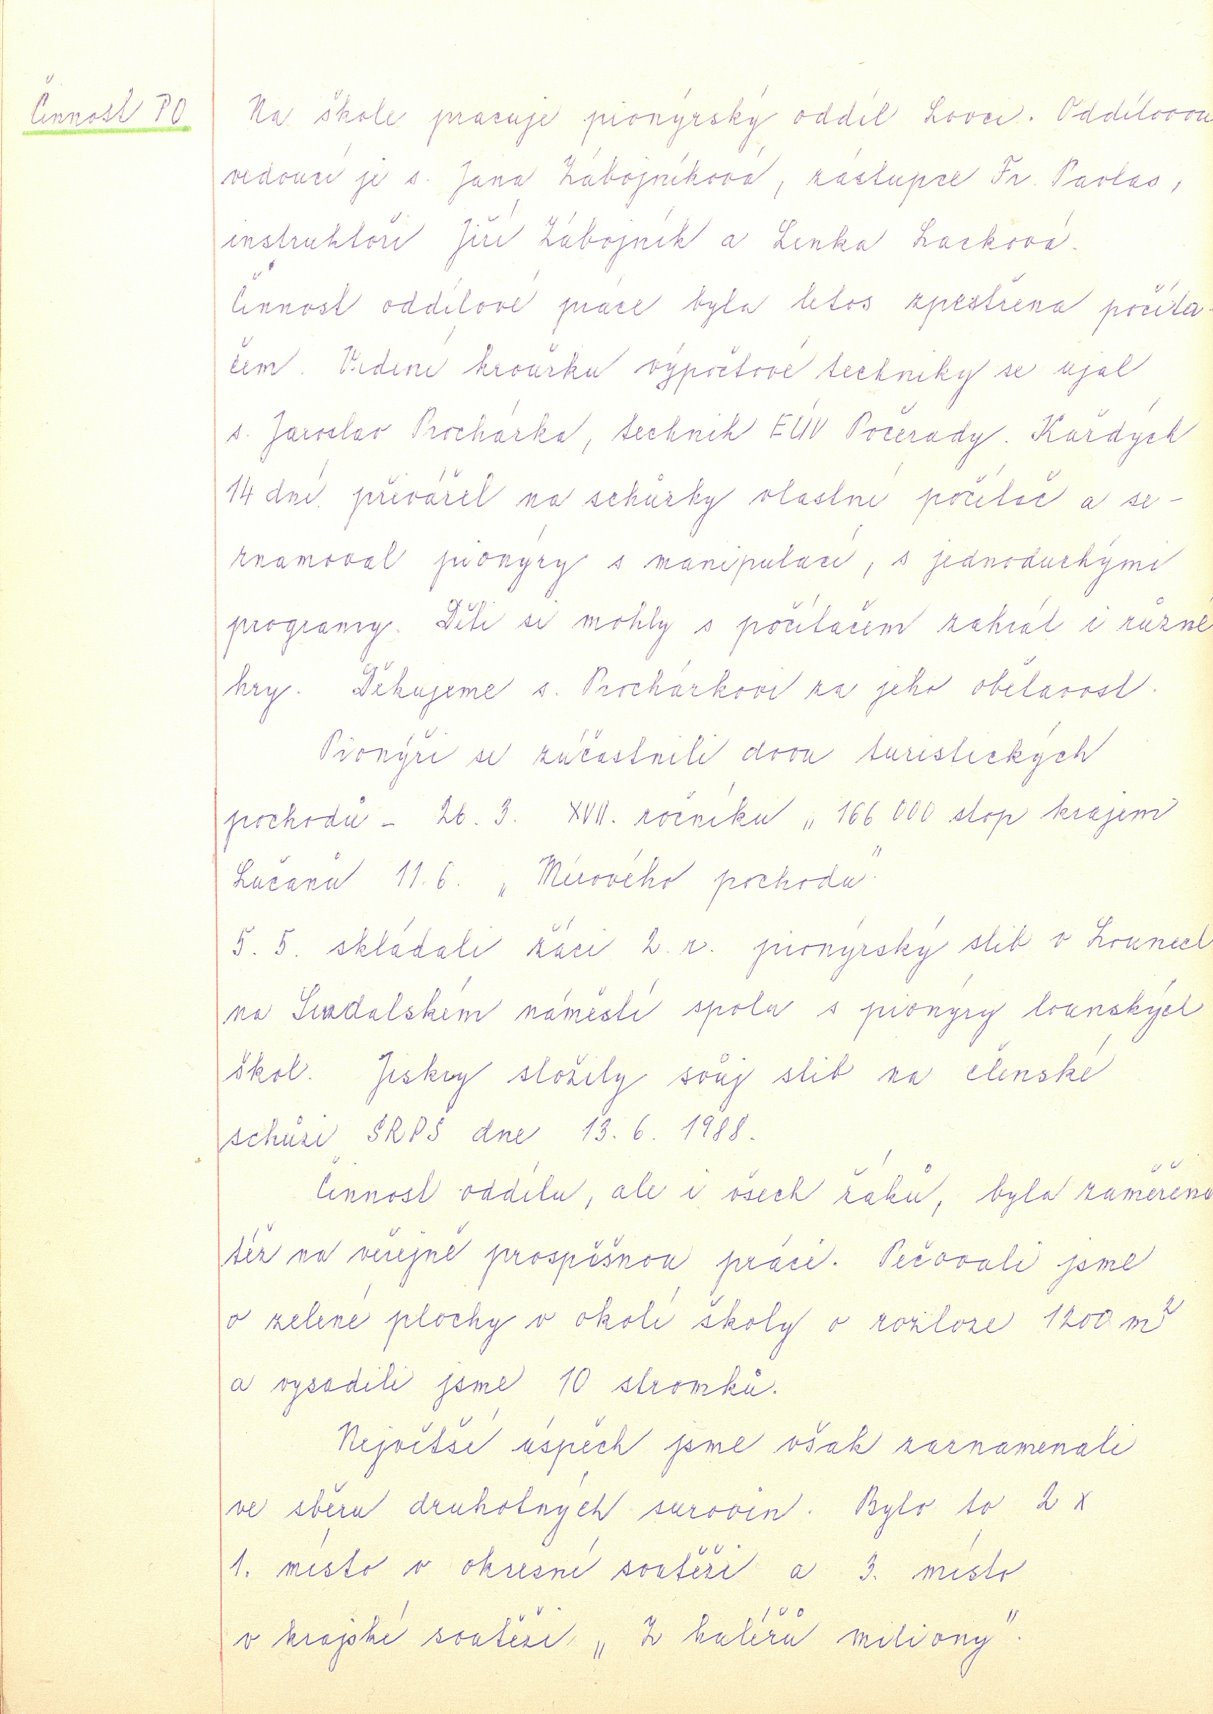 Činnost PO
Na škole pracuje pionýrský oddíl Lovci. Oddílovou
vedoucí je s. Jana Zábojníková, zástupce Fr. Pavlas,
instruktoři Jiří Zábojník a Lenka Lacková.
Činnost oddílové práce byla letos zpestřena počíta-
čem. Vedení kroužku výpočtové techniky se ujal
s. Jaroslav Procházka, technik EÚV Počerady. Každých
14 dní přivážel na schůzky vlastní počítač a se-
znamoval pionýry s manipulací, s jednoduchými
programy. Děti si mohly s počítačem zahrát i různé
hry. Děkujeme s. Procházkovi za jeho obětavost.
Pionýři se zúčastnili dvou turistických
pochodů - 26. 3. XVII. ročníku „166 000 stop krajem
Lučanů 11. 6. „Mírového pochodu"
5. 5. skládali žáci 2. r. pionýrský slib v Lounech
na Suzdalském náměstí spolu s pionýry lounských
škol. Jiskry složily svůj slib na členské
schůzi SRPŠ dne 13. 6. 1988.
Činnost oddílu, ale i všech žáků, byla zaměřena
též na veřejně prospěšnou práci. Pečovali jsme
o zelené plochy v okolí školy o rozloze 1200 m²
a vysadili jsme 10 stromků.
Největší úspěch jsme však zaznamenali
ve sběru druhotných surovin. Bylo to 2 x
1. místo v okresní soutěži a 3. místo
v krajské soutěži „Z haléřů miliony".